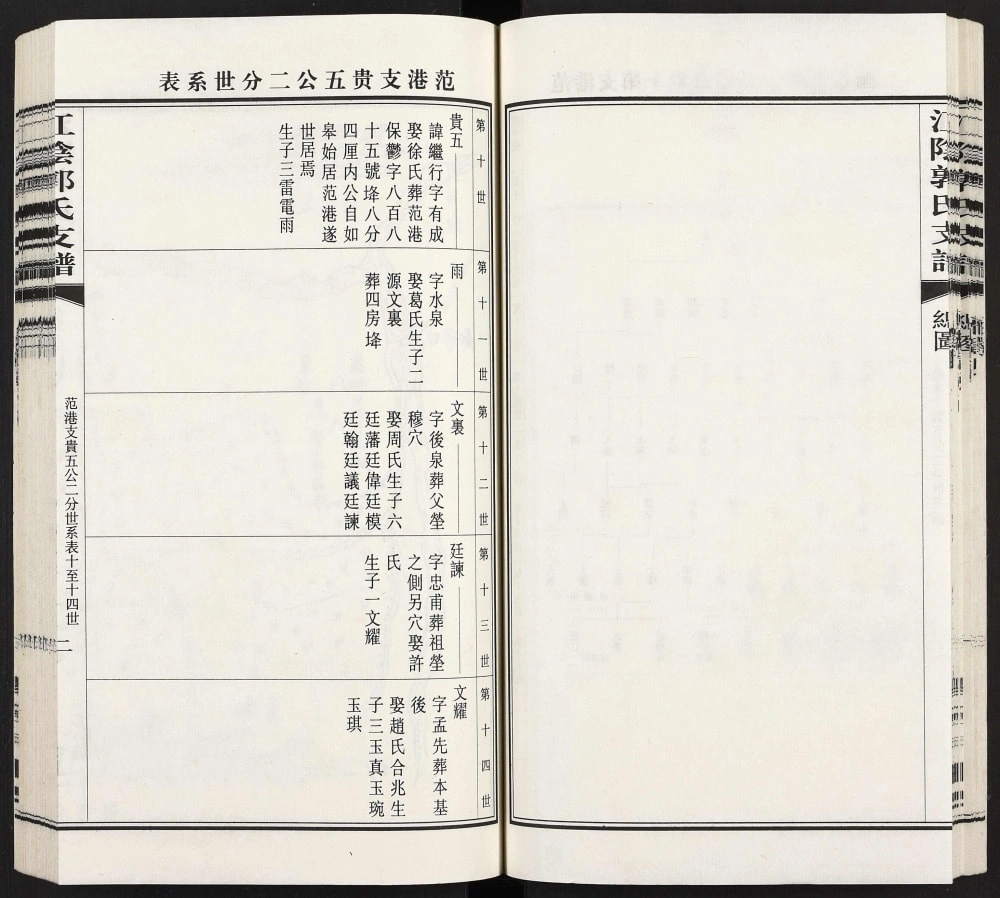 江陰郭氏支譜
糾圖
范港支贵五公二分世系表
第十世
貴五
諱繼行字有成
娶徐氏葬范港
保鬱字八百八
十五號埄八分
四厘内公自如
皋始居范港遂
世居焉
生子三雷電雨
第十一世
雨
字水泉
娶葛氏生子二
源文裏
葬四房埄
第十二世
文裏
字後泉葬父塋
穆穴
娶周氏生子六
廷藩廷偉廷模
廷翰廷議廷諫
第十三世
廷諫
字忠甫葬祖塋
之側另穴娶許
氏
生子一文耀
第十四世
文耀
字孟先葬本基
後
娶趙氏合兆生
子三玉真玉琬
玉琪
江陰郭氏支譜
范港支貴五公二分世系表十至十四世
二